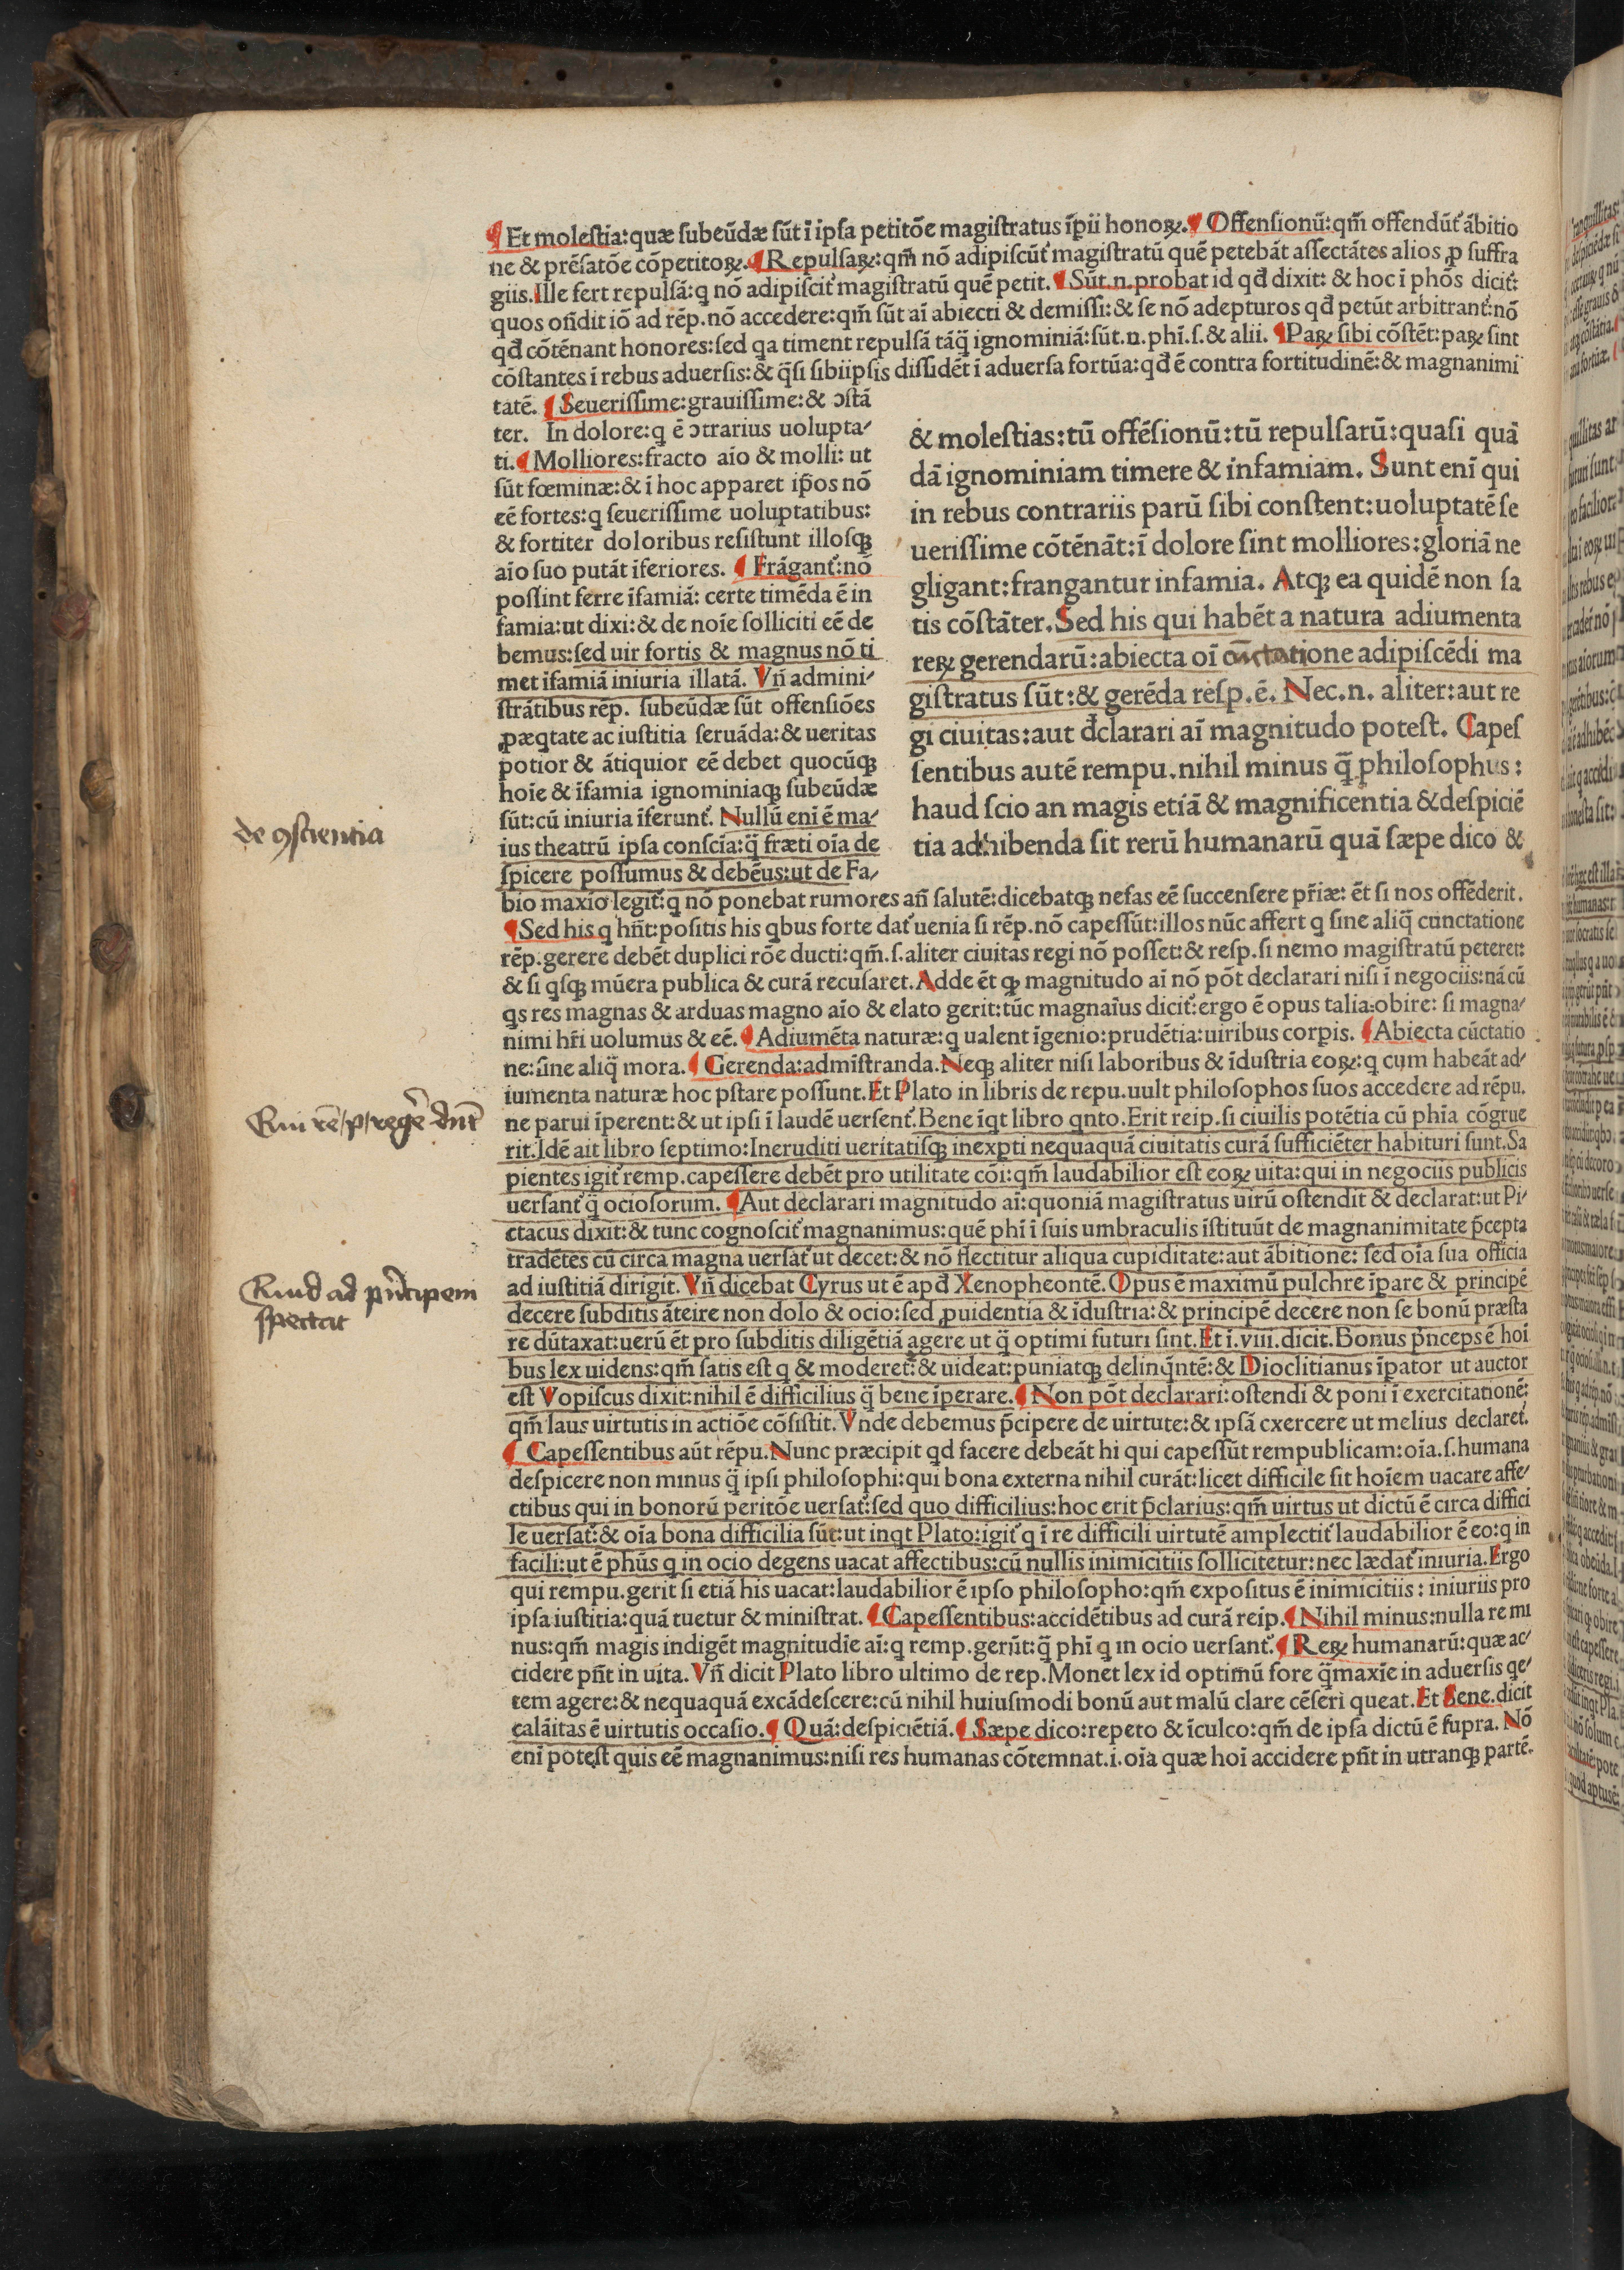 ¶ Et moleſtia: quæ ſubeūdæ ſūt ī ipſa petitōe magiſtratus īpii honoꝝ. ¶ Offenſionū: qm̄ offendūt᷑ ābitio
ne & prēſatōe cōpetitoꝝ. ¶ Repulſaꝝ: qm̄ nō adipiſcūt᷑ magiſtratū quē petebāt aſſectātes alios ꝓ ſuffra
giis. Ille fert repulſā: q nō adipiſcit᷑ magiſtratū quē petit. ¶ Sūt.n. probat id qđ dixit: & hoc ī phōs dicit᷑:
quos oñdit iō ad rēp. nō accedere: qm̄ ſūt aī abiecti & demiſſi: & ſe nō adepturos qđ petūt arbitrant᷑: nō
qđ cōtēnant honores: ſed qa timent repulſā tāq̄ ignominiā: ſūt.n. phī.ſ. & alii. ¶ Paꝝ ſibi cōſtēt: paꝝ ſint
cōſtantes ī rebus aduerſis: & q̄ſi ſibiipſis diſſidēt ī aduerſa fortūa: qđ ē contra fortitudinē: & magnanimi
tatē. ¶ Seueriſſime: grauiſſime: & ↄſtā
ter. In dolore: q ē ↄtrarius uolupta/
ti. ¶ Molliores: fracto aīo & molli: ut
ſūt fœminæ: & ī hoc apparet ip̄os nō
eē fortes: q ſeueriſſime uoluptatibus:
& fortiter doloribus reſiſtunt illoſqꝫ
aīo ſuo putāt īferiores. ¶ Frāgant᷑: nō
poſſint ferre īfamiā: certe timēda ē in
famia: ut dixi: & de noīe ſolliciti eē de
bemus: ſed uir fortis & magnus nō ti
met īfamiā iniuria illatā. Vn̄ admini/
ſtrātibus rēp. ſubeūdæ ſūt offenſiōes
ꝓ æqtate ac iuſtitia ſeruāda: & ueritas
potior & ātiquior eē debet quocūqꝫ
hoīe & īfamia ignominiaqꝫ ſubeūdæ
ſūt: cū iniuria īferunt᷑. Nullū enī ē ma/
ius theatrū ipſa conſcīa: q̄ fræti oīa de
ſpicere poſſumus & debēus: ut de Fa/
& moleſtias: tū offēſionū: tū repulſarū: quaſi quā
dā ignominiam timere & infamiam. Sunt enī qui
in rebus contrariis parū ſibi conſtent: uoluptatē ſe
ueriſſime cōtēnāt: ī dolore ſint molliores: gloriā ne
gligant: frangantur infamia. Atqꝫ ea quidē non ſa
tis cōſtāter. Sed his qui habēt a natura adiumenta
reꝝ gerendarū: abiecta oī cūctatione adipiſcēdi ma
giſtratus ſūt: & gerēda reſp. ē. Nec.n. aliter: aut re
gi ciuitas: aut đclarari aī magnitudo poteſt. Capeſ
ſentibus autē rempu. nihil minus q̄ philoſophus:
haud ſcio an magis etiā & magnificentia & deſpiciē
tia adhibenda ſit rerū humanarū quā ſæpe dico &
bio maxīo legit᷑: q nō ponebat rumores an̄ ſalutē: dicebatqꝫ nefas eē ſuccenſere pr̄iæ: ēt ſi nos offēderit.
¶ Sed his q hn̄t: poſitis his qbus forte dat᷑ uenia ſi rēp. nō capeſſūt: illos nūc affert q ſine aliq̄ cunctatione
rēp. gerere debēt duplici rōe ducti: qm̄.ſ. aliter ciuitas regi nō poſſet: & reſp. ſi nemo magiſtratū peteret:
& ſi qſqꝫ mūera publica & curā recuſaret. Adde ēt qꝙ magnitudo aī nō pōt declarari niſi ī negociis: nā cū
qs res magnas & arduas magno aīo & elato gerit: tūc magnaīus dicit᷑: ergo ē opus talia obire: ſi magna/
nimi hr̄i uolumus & eē. ¶ Adiumēta naturæ: q ualent īgenio: prudētia: uiribus corpis. ¶ Abiecta cūctatio
ne: ſine aliq̄ mora. ¶ Gerenda: admīſtranda. Neqꝫ aliter niſi laboribus & īduſtria eoꝝ: q cum habeāt ad/
iumenta naturæ hoc pſtare poſſunt. Et Plato in libris de repu. uult philoſophos ſuos accedere ad rēpu.
ne parui īperent: & ut ipſi ī laudē uerſent᷑. Bene īqt libro qnto. Erit reip. ſi ciuilis potētia cū phīa cōgrue
rit. Idē ait libro ſeptimo: Ineruditi ueritatiſqꝫ inexpti nequaquā ciuitatis curā ſufficiēter habituri ſunt. Sa
pientes igit᷑ remp. capeſſere debēt pro utilitate cōi: qm̄ laudabilior eſt eoꝝ uita: qui in negociis publicis
uerſant᷑ q̄ ocioſorum. ¶ Aut declarari magnitudo aī: quoniā magiſtratus uirū oſtendit & declarat: ut Pi/
ctacus dixit: & tunc cognoſcit᷑ magnanimus: quē phī ī ſuis umbraculis īſtituūt de magnanimitate p̄cepta
tradētes cū circa magna uerſat᷑ ut decet: & nō flectitur aliqua cupiditate: aut ābitione: ſed oīa ſua officia
ad iuſtitiā dirigit. Vn̄ dicebat Cyrus ut ē apđ Xenopheontē. Opus ē maximū pulchre īpare & principē
decere ſubditis āteire non dolo & ocio: ſed ꝓuidentia & īduſtria: & principē decere non ſe bonū præſta
re dūtaxat: uerū ēt pro ſubditis diligētiā agere ut q̄ optimi futuri ſint. Et ī.viii. dicit. Bonus p̄nceps ē hoī
bus lex uidens: qm̄ ſatis eſt q & moderet᷑: & uideat: puniatqꝫ delinq̄ntē: & Dioclitianus īpator ut auctor
eſt Vopiſcus dixit: nihil ē difficilius q̄ bene īperare. ¶ Non pōt declarari: oſtendi & poni ī exercitationē:
qm̄ laus uirtutis in actiōe cōſiſtit. Vnde debemus p̄cipere de uirtute: & ipſā cxercere ut melius declaret᷑.
¶ Capeſſentibus aūt rēpu. Nunc præcipit qd facere debeāt hi qui capeſſūt rempublicam: oīa.ſ. humana
deſpicere non minus q̄ ipſi philoſophi: qui bona externa nihil curāt: licet difficile ſit hoīem uacare affe/
ctibus qui in bonorū peritōe uerſat᷑: ſed quo difficilius: hoc erit p̄clarius: qm̄ uirtus ut dictū ē circa diffici
le uerſat᷑: & oīa bona difficilia ſūt: ut inqt Plato: igit᷑ q ī re difficili uirtutē amplectit᷑ laudabilior ē eo: q in
facili: ut ē phūs q in ocio degens uacat affectibus: cū nullis inimicitiis ſollicitetur: nec lædat᷑ iniuria. Ergo
qui rempu. gerit ſi etiā his uacat: laudabilior ē ipſo philoſopho: qm̄ expoſitus ē inimicitiis: iniuriis pro
ipſa iuſtitia: quā tuetur & miniſtrat. ¶ Capeſſentibus: accidētibus ad curā reip. ¶ Nihil minus: nulla re mi
nus: qm̄ magis indigēt magnitudīe aī: q remp. gerūt: q̄ phī q in ocio uerſant᷑. ¶ Reꝝ humanarū: quæ ac/
cidere pn̄t in uita. Vn̄ dicit Plato libro ultimo de rep. Monet lex id optimū fore q̄maxīe in aduerſis qe/
tem agere: & nequaquā excādeſcere: cū nihil huiuſmodi bonū aut malū clare cēſeri queat. Et Sene. dicit
calāitas ē uirtutis occaſio. ¶ Quā: deſpiciētiā. ¶ Sæpe dico: repeto & īculco: qm̄ de ipſa dictū ē ſupra. Nō
enī poteſt quis eē magnanimus: niſi res humanas cōtemnat.i. oīa quæ hoī accidere pn̄t in utranqꝫ partē.
de ꝯſcientia
Qui rē p regē dn̄t
Quid ad pn̄cipem
ſpectat